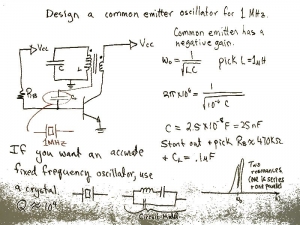 Design a common emitter oscillator for 1 MHz.
Common emitter has a
negative gain.
Vcc
Vcc
C
L
ω₀ = 1/√LC pick L=1μH
2π10⁶ = 1/√10⁻⁶ C
1MHz
C = 2.5×10⁻⁸ F = 25nF
Start out + pick R_B ≈ 470KΩ
+ C_C = .1μF
If you want an accurate
fixed frequency oscillator, use
a crystal.
Circuit Model
Two
resonances,
(one is series